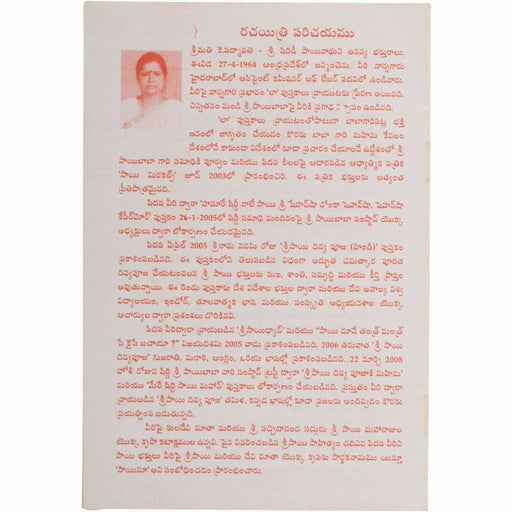 రచయిత్రి పరిచయము
శ్రీమతి కె.పద్మావతి - శ్రీ. షిరిడీ సాయినాథుని అనన్య భక్తురాలు.
ఈవిడ 27-4-1964 ఆంధ్రప్రదేశ్‌లో జన్మించెను. వీరి నాన్నగారు
హైదరాబాద్‌లో అసిస్టెంట్ కమీషనర్ ఆఫ్ లేబర్ పదవిలో ఉండినారు.
వీరిపై నాన్నగారి ప్రభావం 'లా' పుస్తకాలు వ్రాయుటకు ప్రేరణ అయినది.
చిన్నతనం నుండి శ్రీ సాయిబాబాపై వీరికి ప్రగాఢ విశ్వాసం ఉండినది.
'లా' పుస్తకాలు వ్రాయటంతోపాటుగా బాబాగారిపట్ల భక్తి
జనంలో జాగృతం చేయడం కొరకు బాబా గారి మహిమ కేవలం
దేశంలోనే కాకుండా విదేశంలో కూడా ప్రచారం చేయాలనే ఉద్దేశంతో శ్రీ
సాయిబాబా గారి సమాధికి పూర్వం మరియు పిదప లీలలపై ఆధారపడిన ఆధ్యాత్మిక పత్రిక
'సాయి మిరకల్స్' జూన్ 2003లో ప్రారంభించిరి. ఈ పత్రిక భక్తులకు అత్యంత
ప్రీతిపాత్రమైనది.
పిదప వీరి ద్వారా 'హమారే షిర్డీ వాలే సాయి శ్రీ
పుస్తకం 26-1-2005లో షిర్డీ సమాధి మందిరంపై శ్రీ సాయిబాబా సంస్థాన్ యొక్క
అధ్యక్షులు ద్వారా లోకార్పణం చేయడమైనది.
పిదప ఏప్రిల్ 2005 శ్రీరామ నవమి రోజు 'శ్రీసాయి దివ్య పూజ (హిందీ)' పుస్తకం
ప్రకాశింపబడినది. ఈ పుస్తకంలోని తెలుపబడిన విధంగా అద్భుత చమత్కార పూరిత
దివ్యపూజ చేయటంవలన శ్రీ సాయి భక్తులకు సుఖ, శాంతి, సమృద్ధి మరియు కీర్తి ప్రాప్తం
అవుతున్నాయి. ఈ రెండు పుస్తకాకు దేశ విదేశాల భక్తుల ద్వారా మరియు దేవి అహల్య విశ్వ
విద్యాలయం, ఇండోర్, తులనాత్మక భాష మరియు సంస్కృతి అధ్యయనశాల యొక్క
ఆచార్యుల ద్వారా ప్రశంసలు దొరికినవి.
పిదప వీరిద్వారా వ్రాయబడిన 'శ్రీసాయిధ్యాన్' మరియు "సాయి మానే తంత్ర్ మంత్ర్
సే కైసే బచాయా ?" విజయదశమి 2005 నాడు ప్రకాశింపబడినది. 2006 తరువాత 'శ్రీ సాయి
దివ్యపూజ' గుజరాతి, మరాఠి, ఆంగ్లం, ఒరియ భాషల్లో ప్రకాశింపబడినది. 22 మార్చి 2008
హోళీ రోజున షిర్డి శ్రీ సాయిబాబా వారి సంస్థాన్ ట్రస్టీ ద్వారా 'శ్రీసాయి దివ్య పూజాకీ మహిమ'
మరియు 'మేరే షిర్డి సాయి మహాన్' పుస్తకాలు లోకార్పణం చేయబడినది. ప్రస్తుతం వీరి ద్వారా
వ్రాయబడిన 'శ్రీ సాయి దివ్య పూజ' తమిళ, కన్నడ భాషల్లో కూడా ప్రజలకు అందివ్వడం కొరకు
ప్రయత్నింప బడుతున్నది.
వీరిపై కులదేవి మాతా మరియు శ్రీ సచ్చిదానంద సద్గురు శ్రీ సాయి మహారాజుల
యొక్క కృపా కటాక్షములు ఉన్నవి. పైన వివరించబడిన శ్రీసాయి సాహిత్యం చదివిన పిదప వీరిని
సాయి భక్తులు వీరిపై శ్రీసాయి మరియు దేవి మాతా యొక్క కృపకు సార్థకనామము యిస్తూ
'సాయిమా' అని సంబోధించడం ప్రారంభించారు.